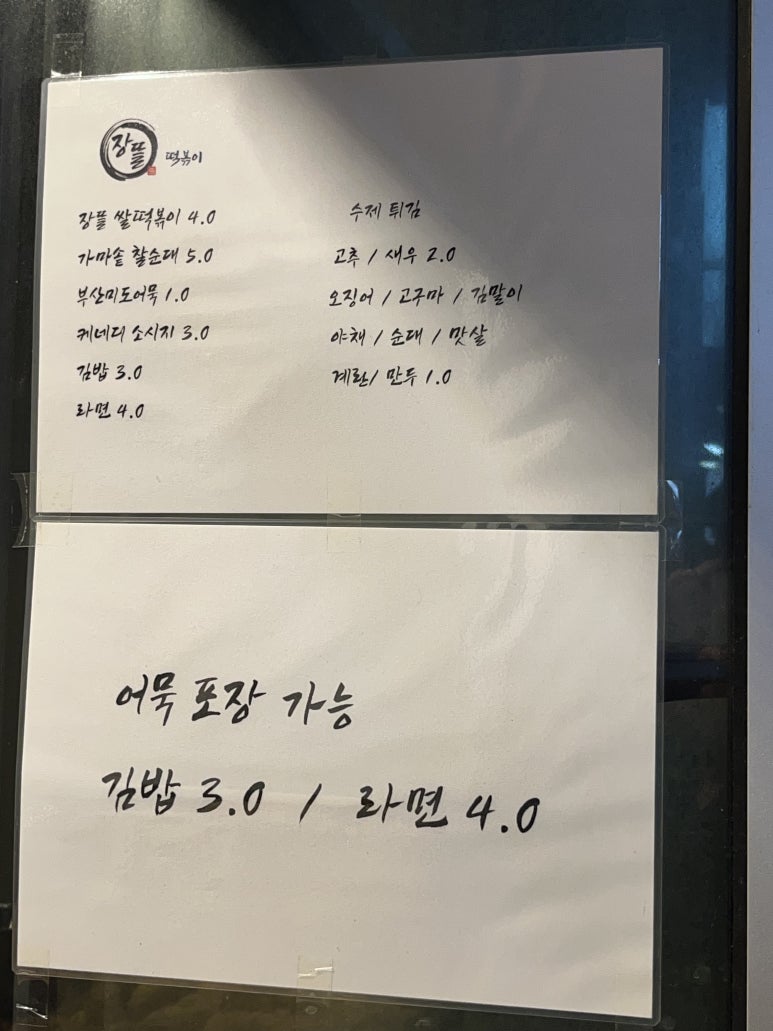 장뜰 떡볶이
장뜰 쌀떡볶이 4.0
가마솥 찰순대 5.0
부산미도어묵 1.0
케네디 소시지 3.0
김밥 3.0
라면 4.0
수제 튀김
고추 / 새우 2.0
오징어 / 고구마 / 김말이
야채 / 순대 / 맛살
계란/ 만두 1.0
어묵 포장 가능
김밥 3.0 / 라면 4.0